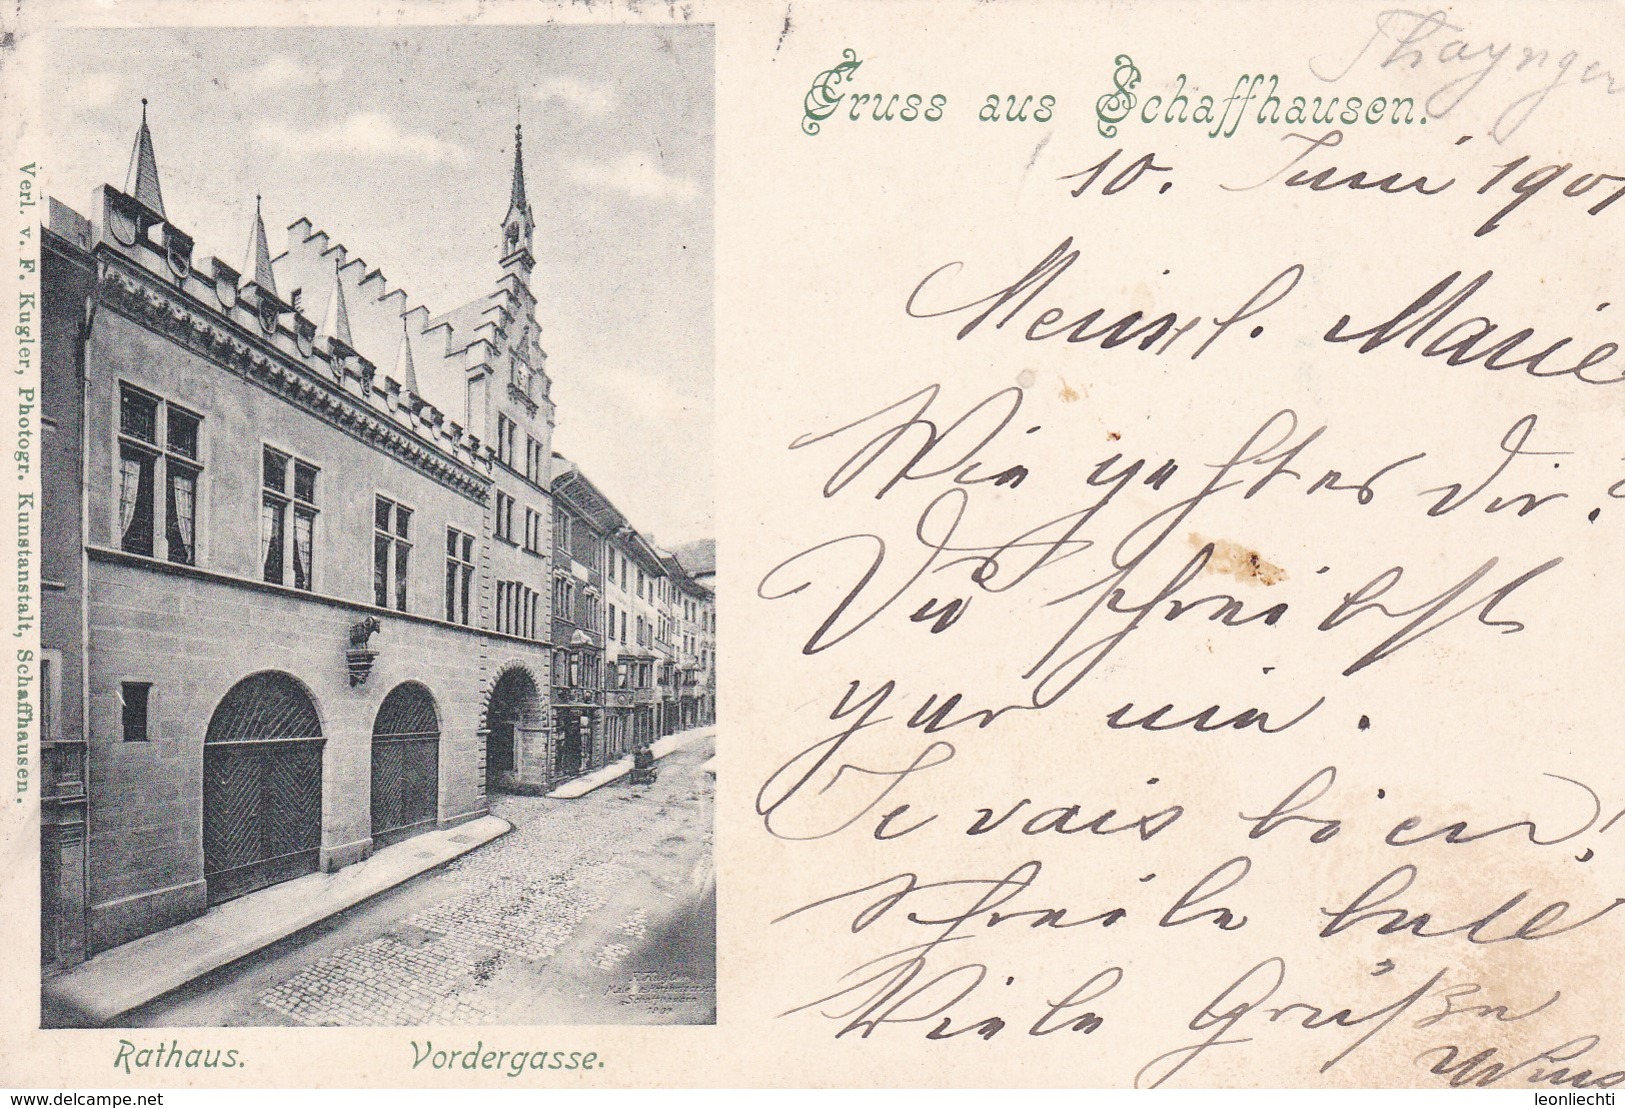 Thayngen
Gruss aus Schaffhausen.
10. Juni 1901
Marie
Wie geht es dir?
Du schreibst
gar nie.
Je vais bien!
Schreibe bald
Viele Grüße
Verl. v. F. Kugler, Photogr. Kunstanstalt, Schaffhausen.
Schaffhausen
Rathaus. Vordergasse.
www.delcampe.net
leonliechti